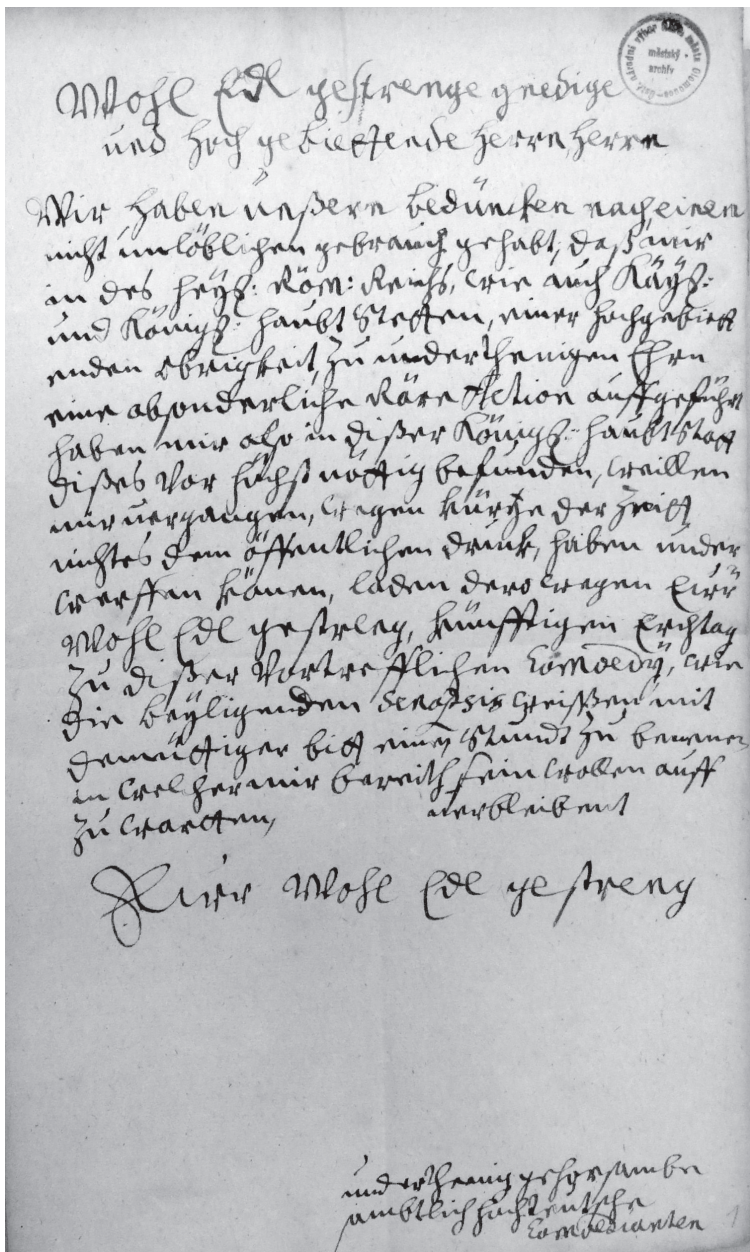 Okr. národní výbor města Olomouce
městský
archiv
Wohl Edl gestrenge gnedige
und Hoch gebiettende Herrn, Herrn
Wir haben unßern bedüncken nach einen
nicht unlöblichen gebrauch gehabt, daß mir
in des Heyl: Röm: Reichs, wie auch Käyß:
und Königl: haubt Stetten, einer hochgebiett
enden obrigkeit, zu underthenigen Ehrn
eine absonderliche Räre Action auffgeführt
haben mir also in dißer Königl: haubt Statt
dißes vor höchst nöttig befunden, weillen
mir vergangen, wegen kürtze der Zeitt
nichtes dem öffentlichen druck, haben under
werffen könen, laden dero wegen Eurr
Wohl Edl gestreng, künfftigen Erchtag
zu dißer vortrefflichen Comoedÿ, wie
die beÿligenden Senopsis weißen mit
demüttiger bitt eine Stundt zu benenen
in welcher mir bereith sein wollen auff
zu wartten, verbleibent
Eurr Wohl Edl gestreng
underthenig gehorsambe
sambtlich hochteutsche
Comoedianten
1